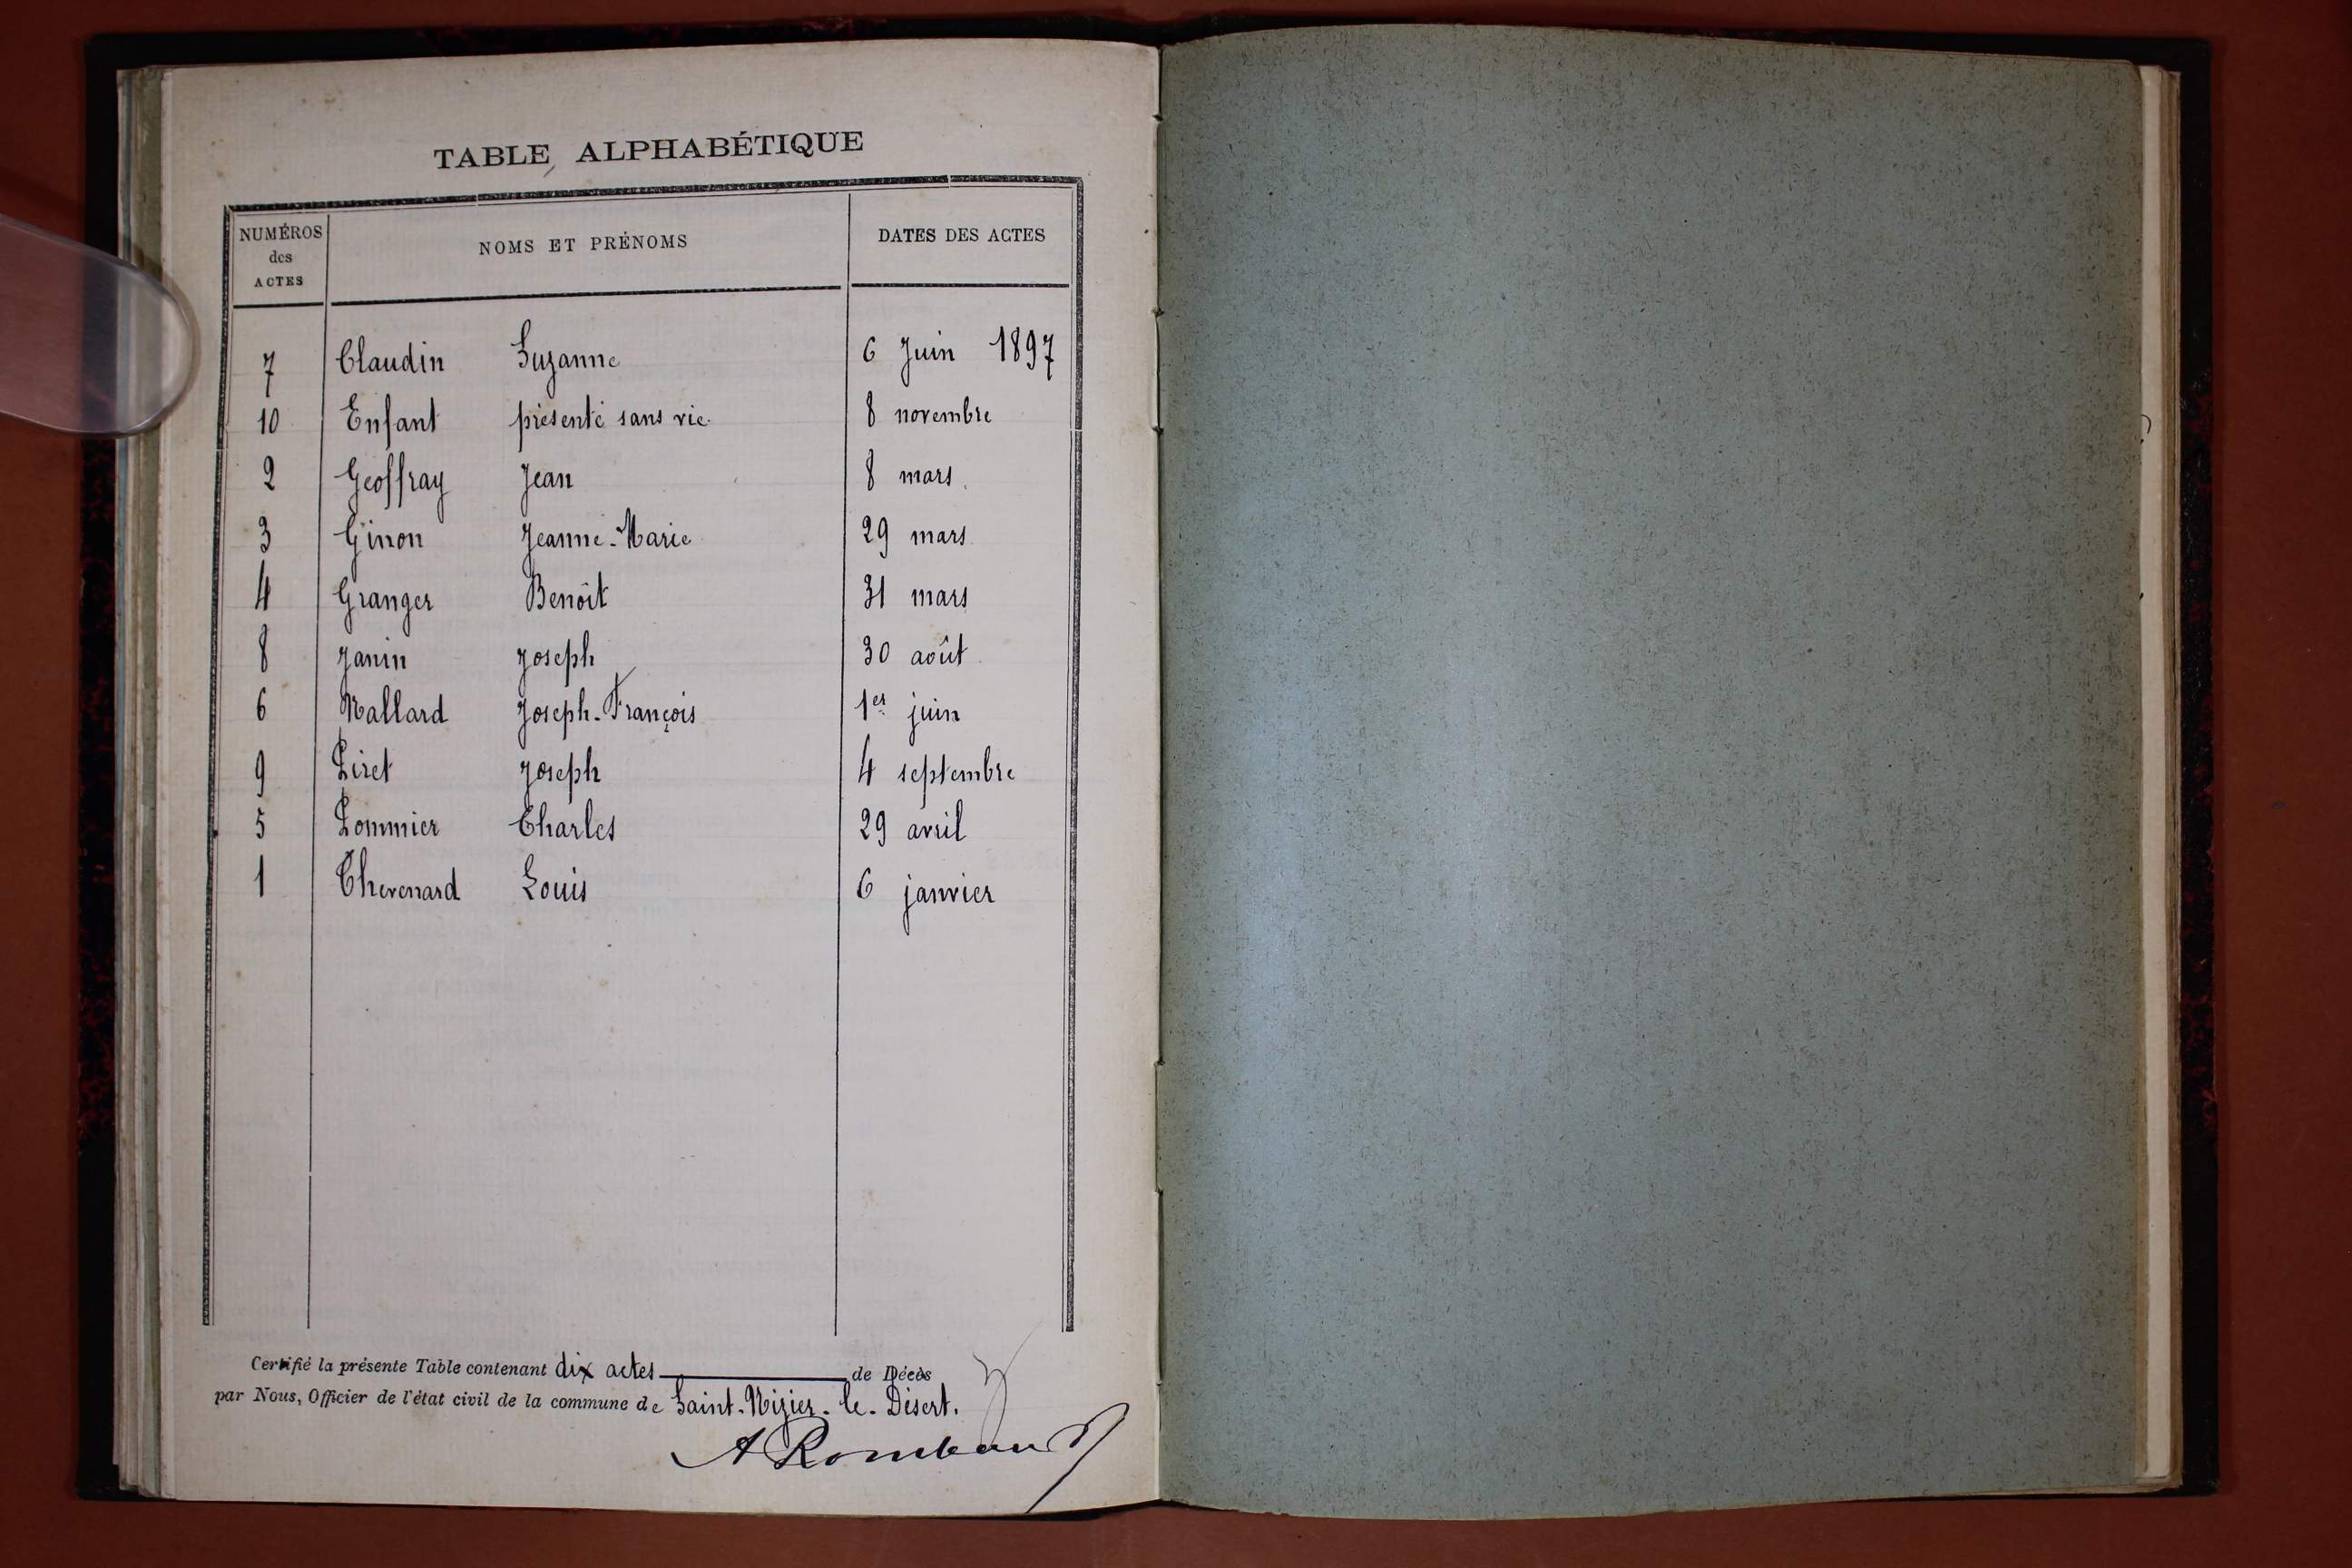 TABLE ALPHABÉTIQUE
NUMÉROS des ACTES	NOMS ET PRÉNOMS	DATES DES ACTES
7	Claudin Suzanne	6 Juin 1897
10	Enfant présenté sans vie	8 novembre
2	Geoffray Jean	8 mars
3	Ginon Jeanne-Marie	29 mars
4	Granger Benoît	31 mars
8	Janin Joseph	30 août
6	Nallard Joseph-François	1er juin
9	Piret Joseph	4 septembre
5	Pommier Charles	29 avril
1	Thevenard Louis	6 janvier
Certifié la présente Table contenant dix actes de Décès
par Nous, Officier de l'état civil de la commune de Saint-Nizier-le-Désert.
A Rombaud